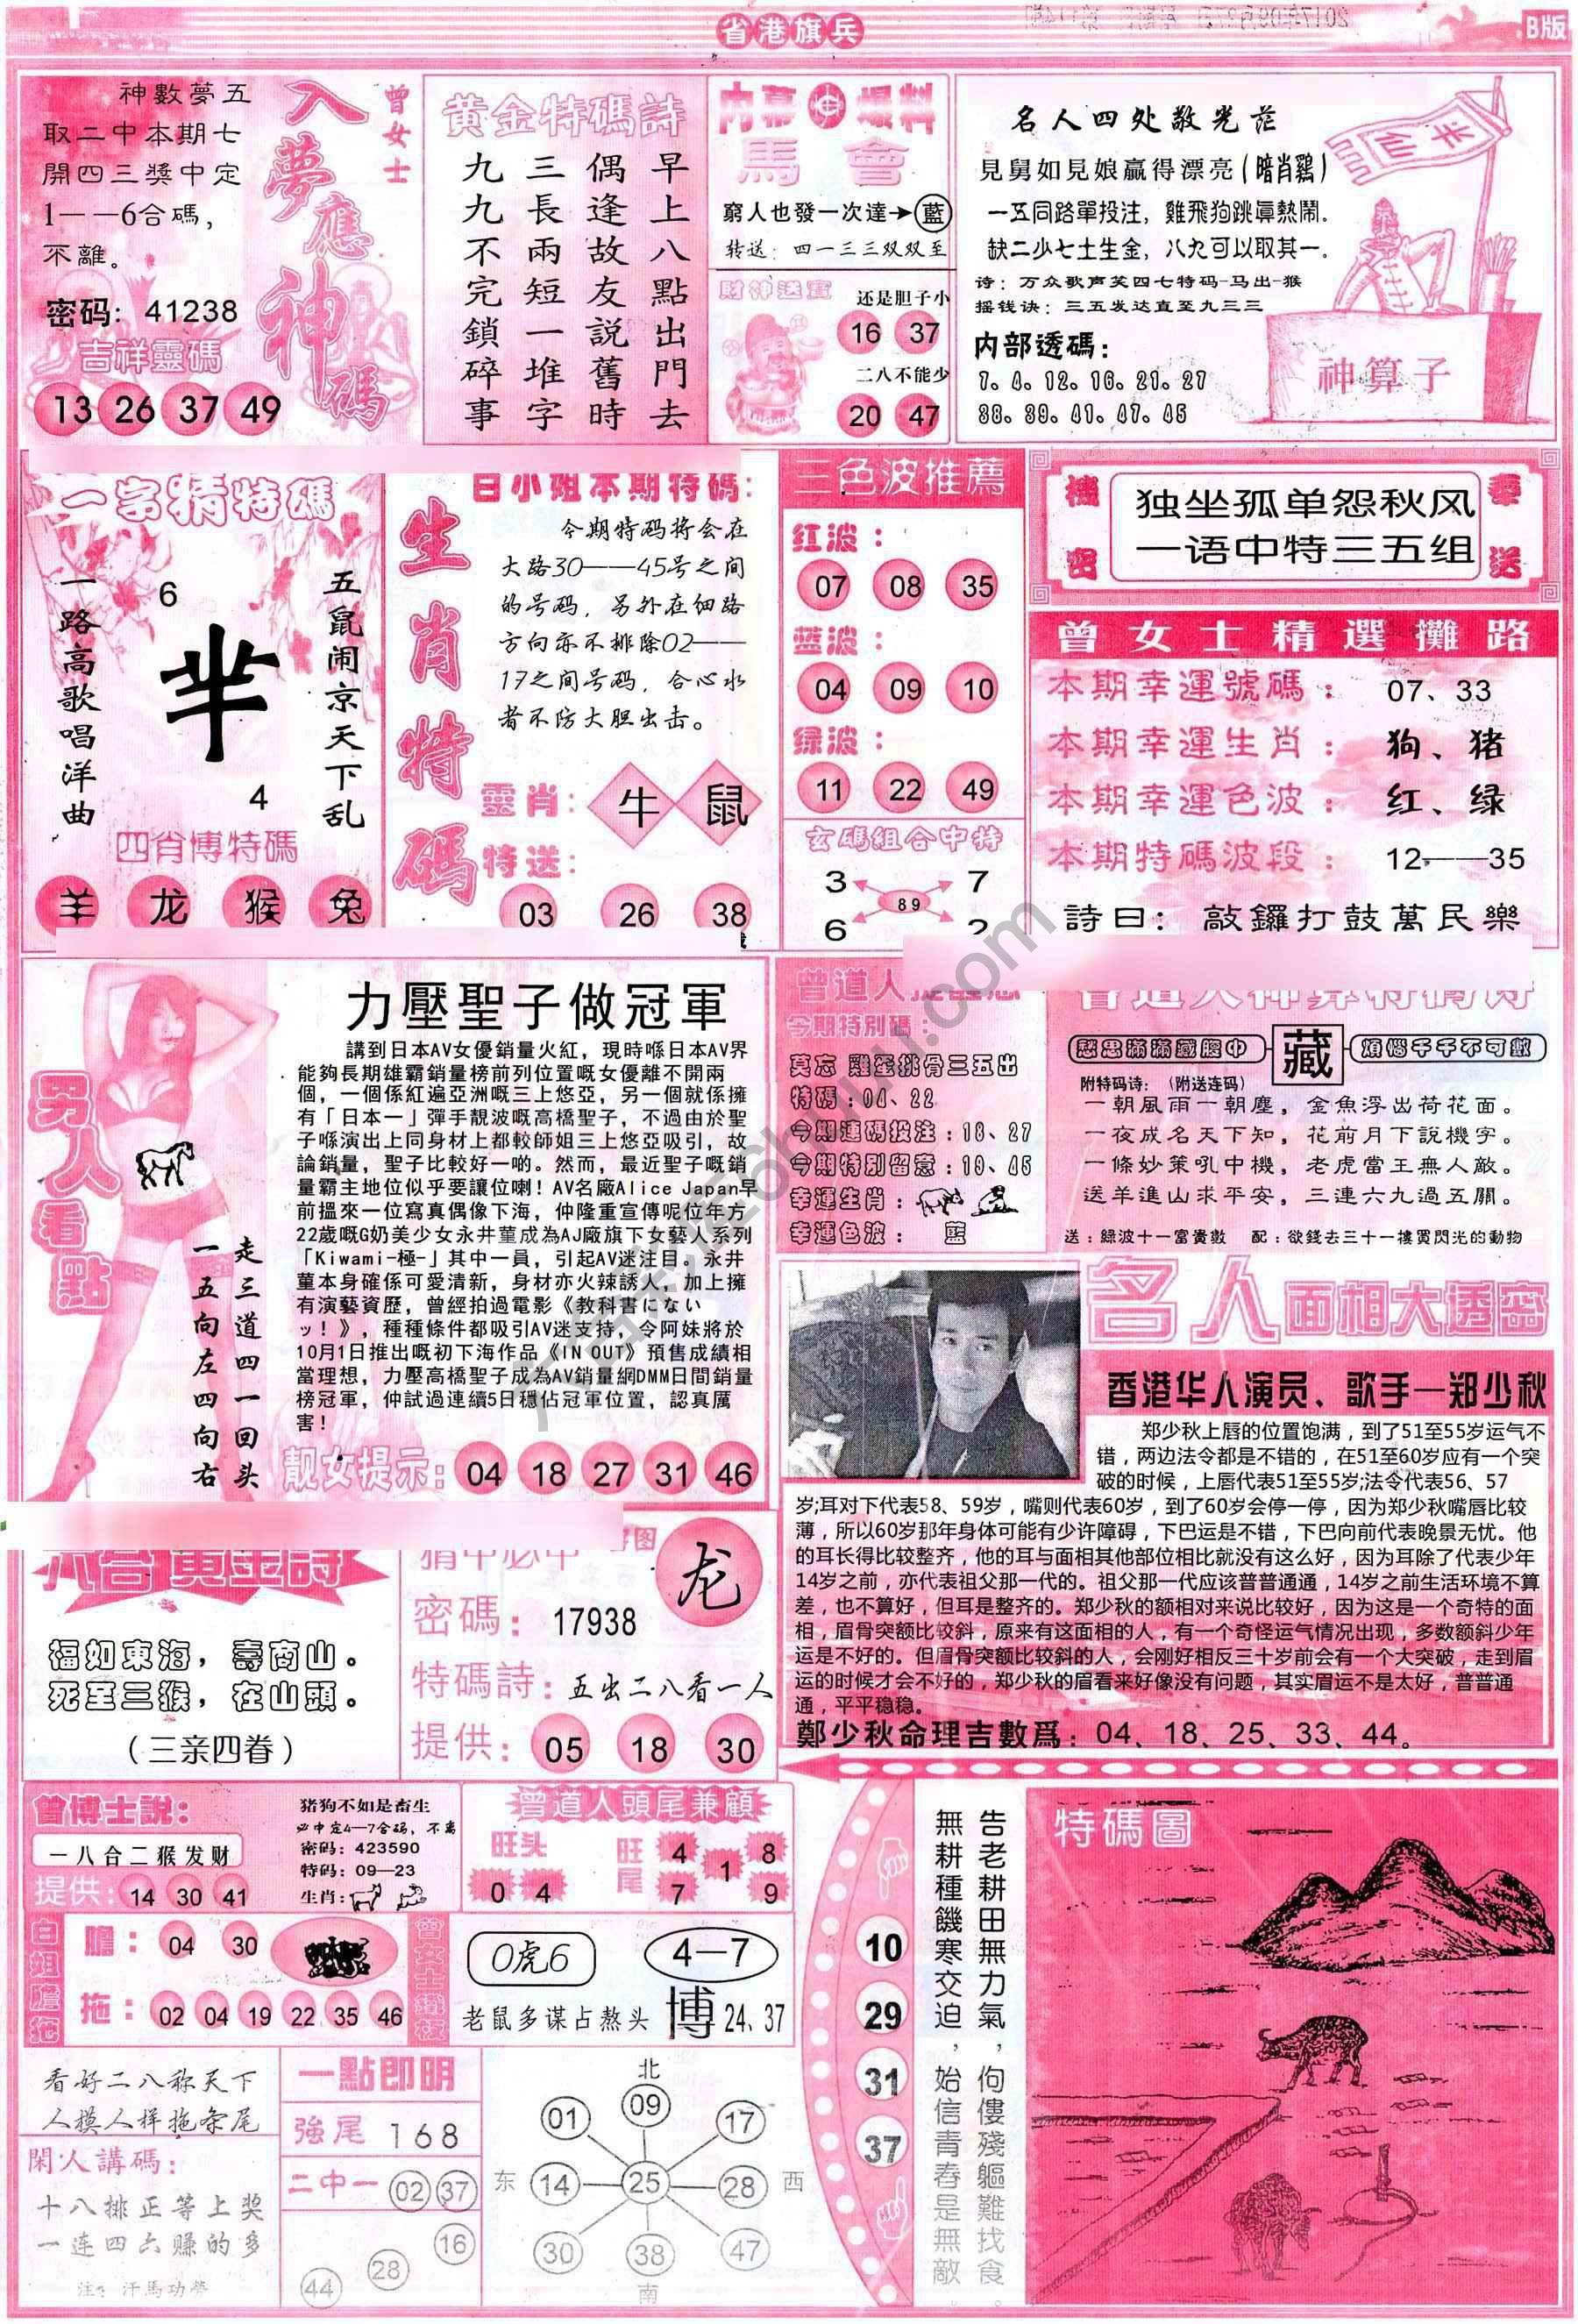 省港旗兵
B版
曾女士
入夢應神碼
神數夢五
取二中本期七
開四三獎中定
1——6合碼，
不離。
密码：41238
吉祥靈碼
13 26 37 49
黄金特碼詩
早上八點出門去
偶逢故友說舊時
三長兩短一堆字
九九不完鎖碎事
内幕爆料
馬會
窮人也發一次達→藍
转送：四一三三双双至
財神送寶
还是胆子小
16 37
二八不能少
20 47
名人四处敬光茫
見舅如見娘贏得漂亮(暗肖鷄)
一五同路單投注，雞飛狗跳眞熱鬧.
缺二少七土生金，八九可以取其一.
诗：万众歌声笑四七特码-马出-猴
摇钱诀：三五发达直至九三三
内部透碼：
7。4。12。16。21。27
38。39。41。47。45
半仙
神算子
一字猜特碼
五鼠闹京天下乱
一路高歌唱洋曲
6
芈
4
四肖博特碼
羊 龙 猴 兔
生肖特碼
白小姐本期特碼：
今期特码将会在
大路30——45号之间
的号码，另外在细路
方向亦不排除02——
17之间号码，合心水
者不防大胆出击。
靈肖：牛 鼠
特送：
03 26 38
三色波推薦
红波：
07 08 35
蓝波：
04 09 10
绿波：
11 22 49
玄碼組合中特
3 7
89
6 2
機密
奉送
独坐孤单怨秋风
一语中特三五组
曾女士精選攤路
本期幸運號碼：07、33
本期幸運生肖：狗、猪
本期幸運色波：红、绿
本期特碼波段：12——35
詩曰：敲鑼打鼓萬民樂
男人看點
走三道四一回头
一五向左四向右
力壓聖子做冠軍
講到日本AV女優銷量火紅，現時喺日本AV界
能夠長期雄霸銷量榜前列位置嘅女優離不開兩
個，一個係紅遍亞洲嘅三上悠亞，另一個就係擁
有「日本一」彈手靚波嘅高橋聖子，不過由於聖
子喺演出上同身材上都較師姐三上悠亞吸引，故
論銷量，聖子比較好一啲。然而，最近聖子嘅銷
量霸主地位似乎要讓位喇！AV名廠Alice Japan早
前搵來一位寫真偶像下海，仲隆重宣傳呢位年方
22歲嘅G奶美少女永井菫成為AJ廠旗下女藝人系列
「Kiwami-極-」其中一員，引起AV迷注目。永井
菫本身確係可愛清新，身材亦火辣誘人，加上擁
有演藝資歷，曾經拍過電影《教科書にない
ッ！》，種種條件都吸引AV迷支持，令阿妹將於
10月1日推出嘅初下海作品《IN OUT》預售成績相
當理想，力壓高橋聖子成為AV銷量網DMM日間銷量
榜冠軍，仲試過連續5日穩佔冠軍位置，認真厲
害！
靚女提示：04 18 27 31 46
今期特別碼：
莫忘 雞蛋排骨三五出
特碼：04、22
今期連碼投注：18、27
今期特别留意：19、45
幸運生肖：
幸運色波： 藍
曾道人神算特碼詩
愁思滿滿藏腹中
藏
煩惱千千不可數
附特码诗：（附送连码）
一朝風雨一朝塵，金魚浮出荷花面。
一夜成名天下知，花前月下說機字。
一條妙策吼中機，老虎當王無人敵。
送羊進山求平安，三連六九過五關。
送：綠波十一富貴數 配：欲錢去三十一樓買閃光的動物
名人面相大透密
香港华人演员、歌手—郑少秋
郑少秋上唇的位置饱满，到了51至55岁运气不
错，两边法令都是不错的，在51至60岁应有一个突
破的时候，上唇代表51至55岁;法令代表56、57
岁;耳对下代表58、59岁，嘴则代表60岁，到了60岁会停一停，因为郑少秋嘴唇比较
薄，所以60岁那年身体可能有少许障碍，下巴运是不错，下巴向前代表晚景无忧。他
的耳长得比较整齐，他的耳与面相其他部位相比就没有这么好，因为耳除了代表少年
14岁之前，亦代表祖父那一代的。祖父那一代应该普普通通，14岁之前生活环境不算
差，也不算好，但耳是整齐的。郑少秋的额相对来说比较好，因为这是一个奇特的面
相，眉骨突额比较斜，原来有这面相的人，有一个奇怪运气情况出现，多数额斜少年
运是不好的。但眉骨突额比较斜的人，会刚好相反三十岁前会有一个大突破，走到眉
运的时候才会不好的，郑少秋的眉看来好像没有问题，其实眉运不是太好，普普通
通，平平稳稳。
鄭少秋命理吉數爲：04、18、25、33、44。
六合黄金詩
福如東海，壽商山。
死至三猴，在山頭。
（三亲四眷）
猜中必中
龙
密碼：17938
特碼詩：五出二八看一人
提供：05 18 30
曾博士說：
一八合二猴发财
提供：14 30 41
猪狗不如是畜生
必中定4—7合码，不离
密码：423590
特码：09—23
生肖：
曾道人頭尾兼顧
旺头
0 4
旺尾
4 8
1
7 9
白姐膽拖
膽：04 30
拖：02 04 19 22 35 46
0虎6
4—7
老鼠多谋占熬头 博 24、37
10
29
31
37
告老耕田無力氣，佝僂殘軀難找食。
無耕種饑寒交迫，始信青春是無敵。
特碼圖
看好二八称天下
人模人样拖条尾
閑人講碼：
十八排正等上奖
一连四六赚的多
注：汗马功劳
一點即明
強尾 168
二中一 02 37
16
28
44
北
01 09 17
东 14 25 28 西
30 38 47
南